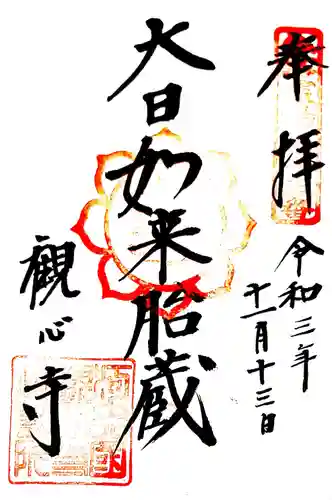 奉拝
令和三年
十一月十三日
大日如来胎蔵
観心寺